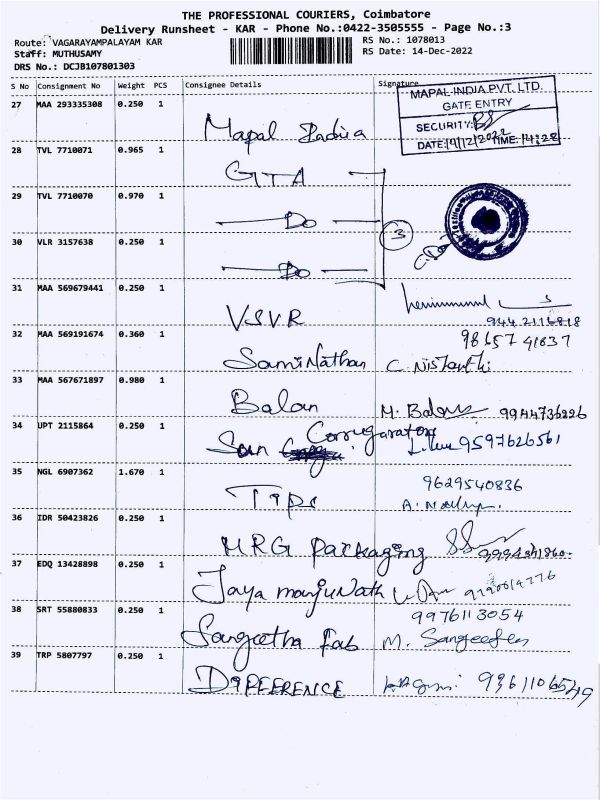 THE PROFESSIONAL COURIERS, Coimbatore
Delivery Runsheet - KAR - Phone No.:0422-3505555 - Page No.:3
Route: VAGARAYAMPALAYAM KAR RS No.: 1078013
Staff: MUTHUSAMY RS Date: 14-Dec-2022
DRS No.: DCJB107801303
S No Consignment No Weight PCS Consignee Details Signature
MAPAL INDIA PVT. LTD.
GATE ENTRY
SECURITY:
DATE: 14/12/2022 TIME: 14:28
27 MAA 293335308 0.250 1 Mapal India
28 TVL 7710071 0.965 1 GTA
29 TVL 7710070 0.970 1 Do
3
30 VLR 3157638 0.250 1 Do
31 MAA 569679441 0.250 1 VSVR
32 MAA 569191674 0.360 1 SamiNathan C. Nishanthi
98657 41637
33 MAA 567671897 0.980 1 Balan M. Balan 9944736226
34 UPT 2115864 0.250 1 Sun Corrugarators 9597626561
35 NGL 6907362 1.670 1 9629540836
36 IDR 50423826 0.250 1 MRG Packaging
37 EDQ 13428898 0.250 1 Jaya manjuNath
38 SRT 55880833 0.250 1 Sangeetha Fab 9976113054
39 TRP 5807797 0.250 1 DIFFERENCE